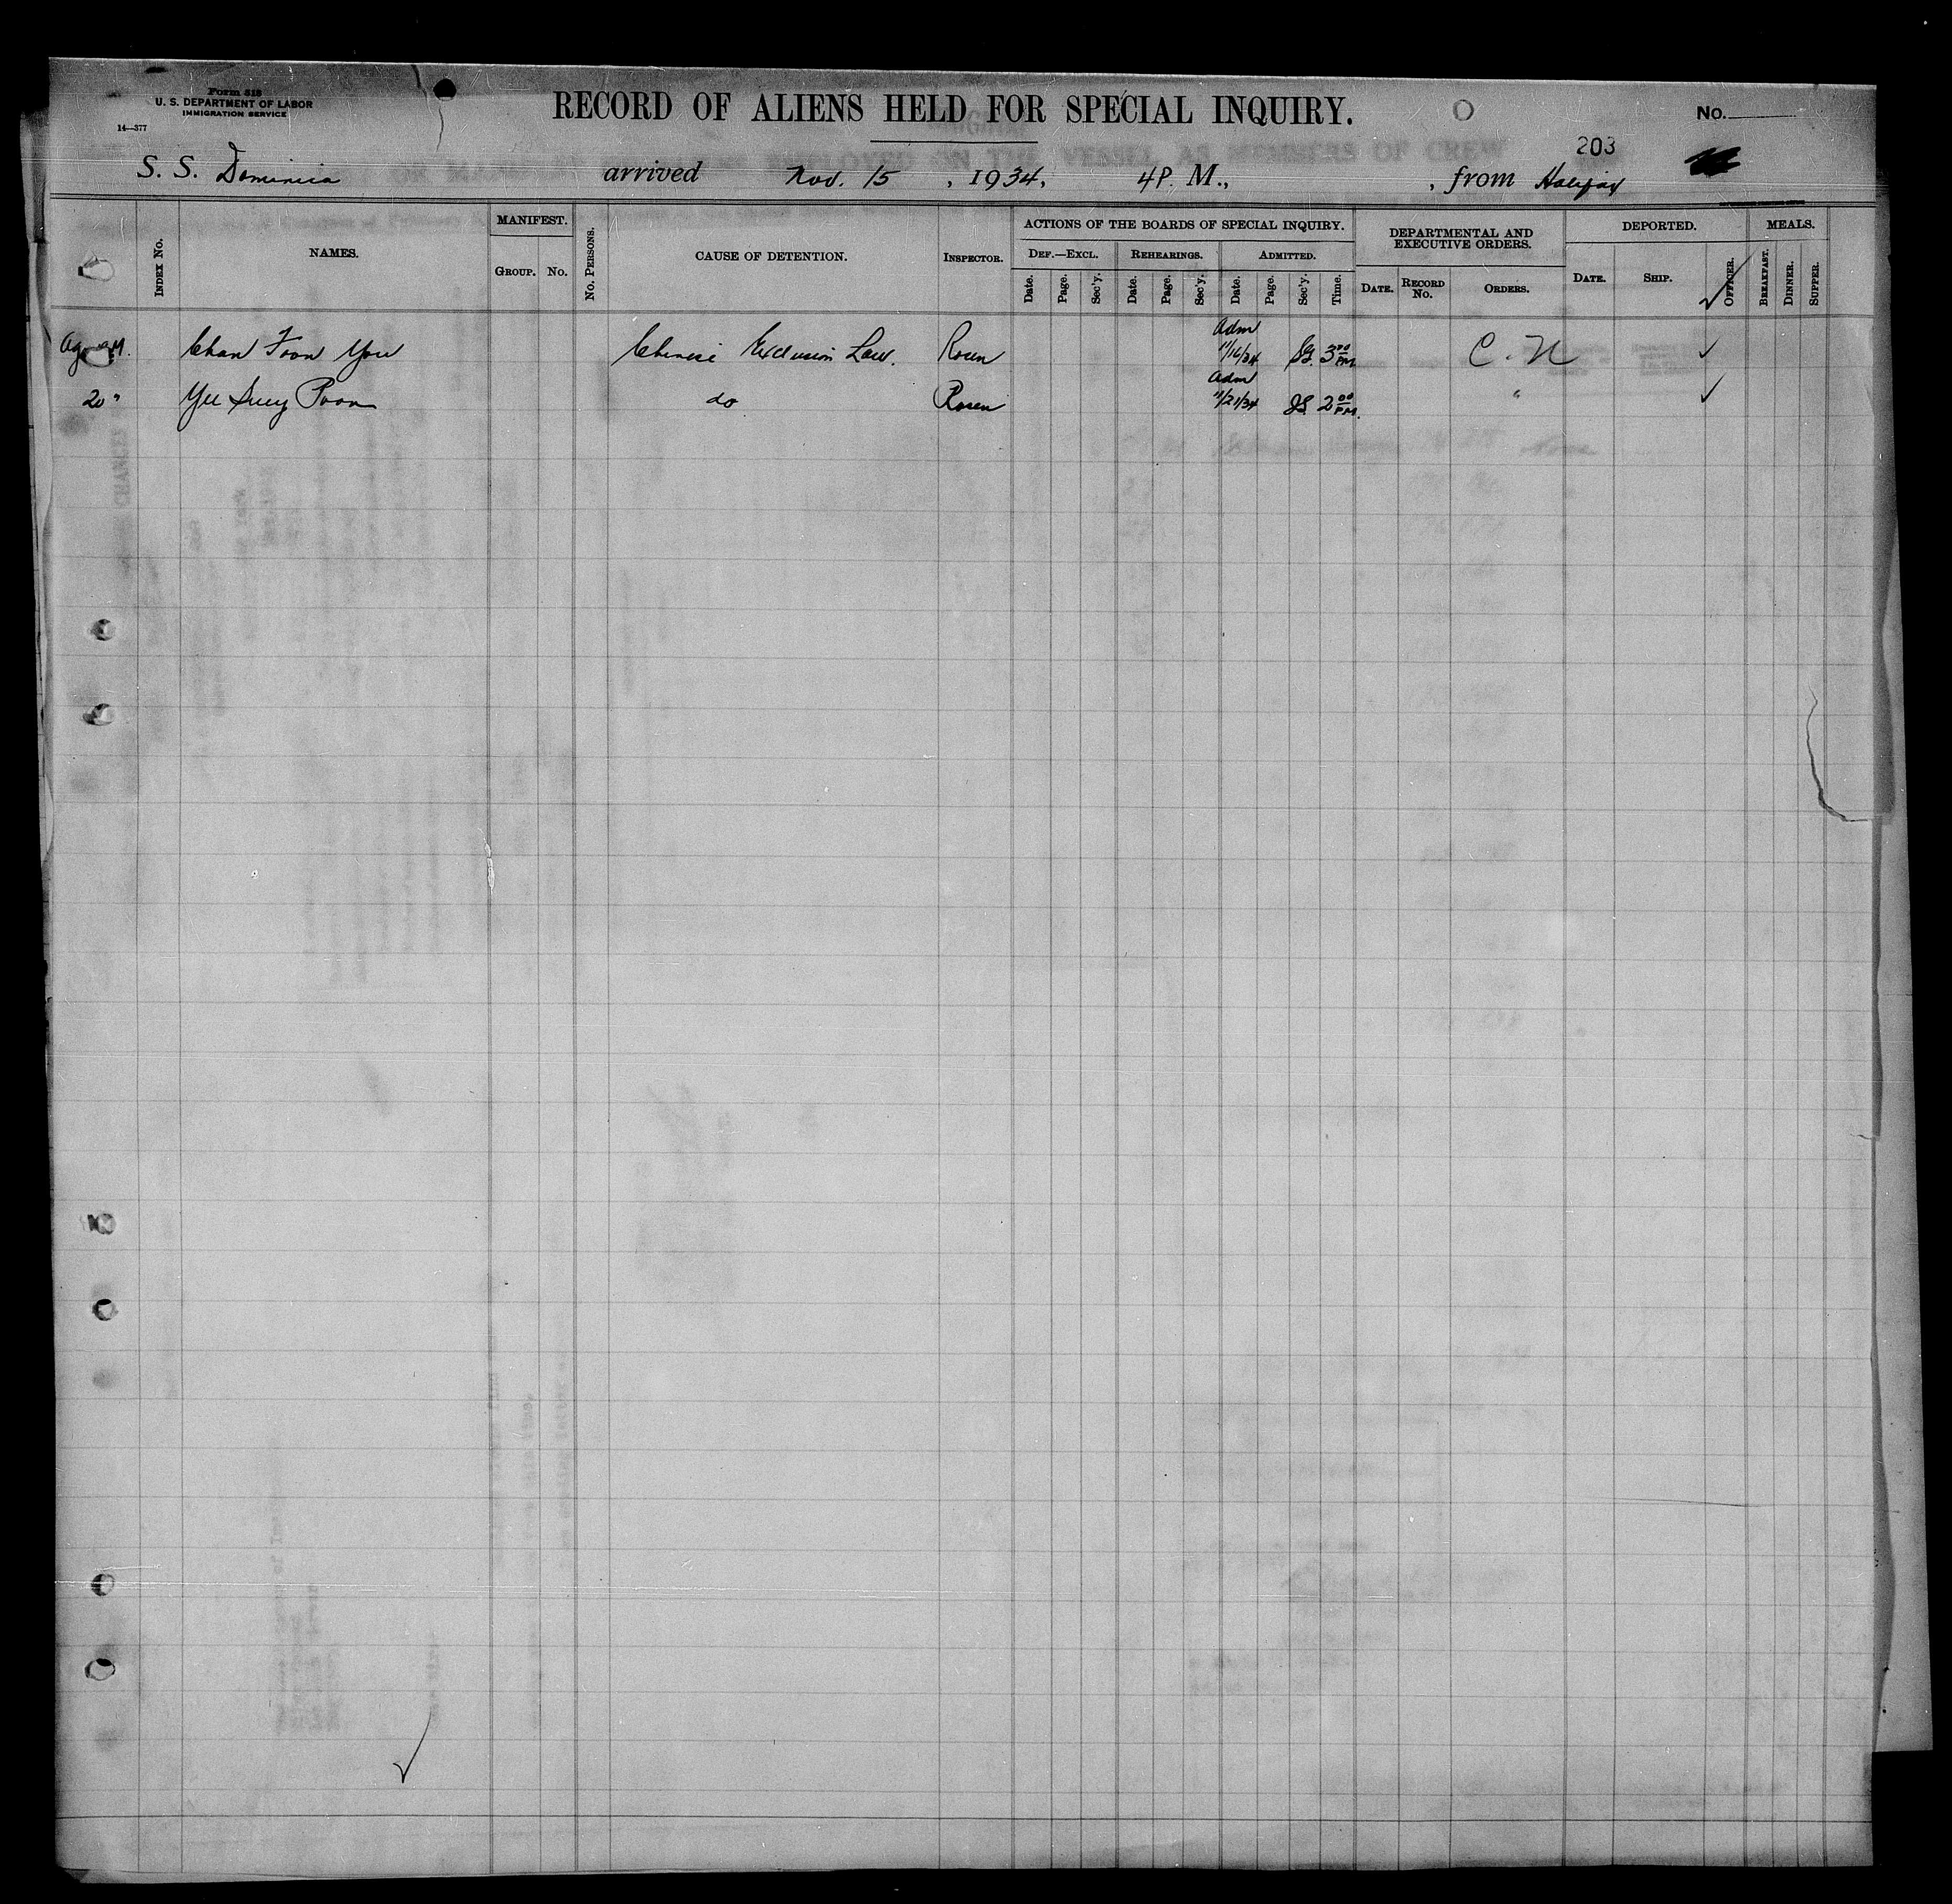 Form 518
U. S. DEPARTMENT OF LABOR
IMMIGRATION SERVICE
14—377
RECORD OF ALIENS HELD FOR SPECIAL INQUIRY.
No.
203
S. S. Dominica arrived Nov. 15, 1934, 4 P. M., , from Halifax
INDEX No.
NAMES.
MANIFEST.
GROUP. No.
No. PERSONS.
CAUSE OF DETENTION.
INSPECTOR.
ACTIONS OF THE BOARDS OF SPECIAL INQUIRY.
DEF.—EXCL. REHEARINGS. ADMITTED.
Date. Page. Sec'y. Date. Page. Sec'y. Date. Page. Sec'y. Time.
DEPARTMENTAL AND
EXECUTIVE ORDERS.
DATE. RECORD No. ORDERS.
DEPORTED.
DATE. SHIP. OFFICER.
MEALS.
BREAKFAST. DINNER. SUPPER.
Chan Foon You Chinese Exclusion Law. Rosen Adm 11/16/34 3 00 PM C. N
20 " Yee Suey Poon do Rosen Adm 11/21/34 2 00 PM. "